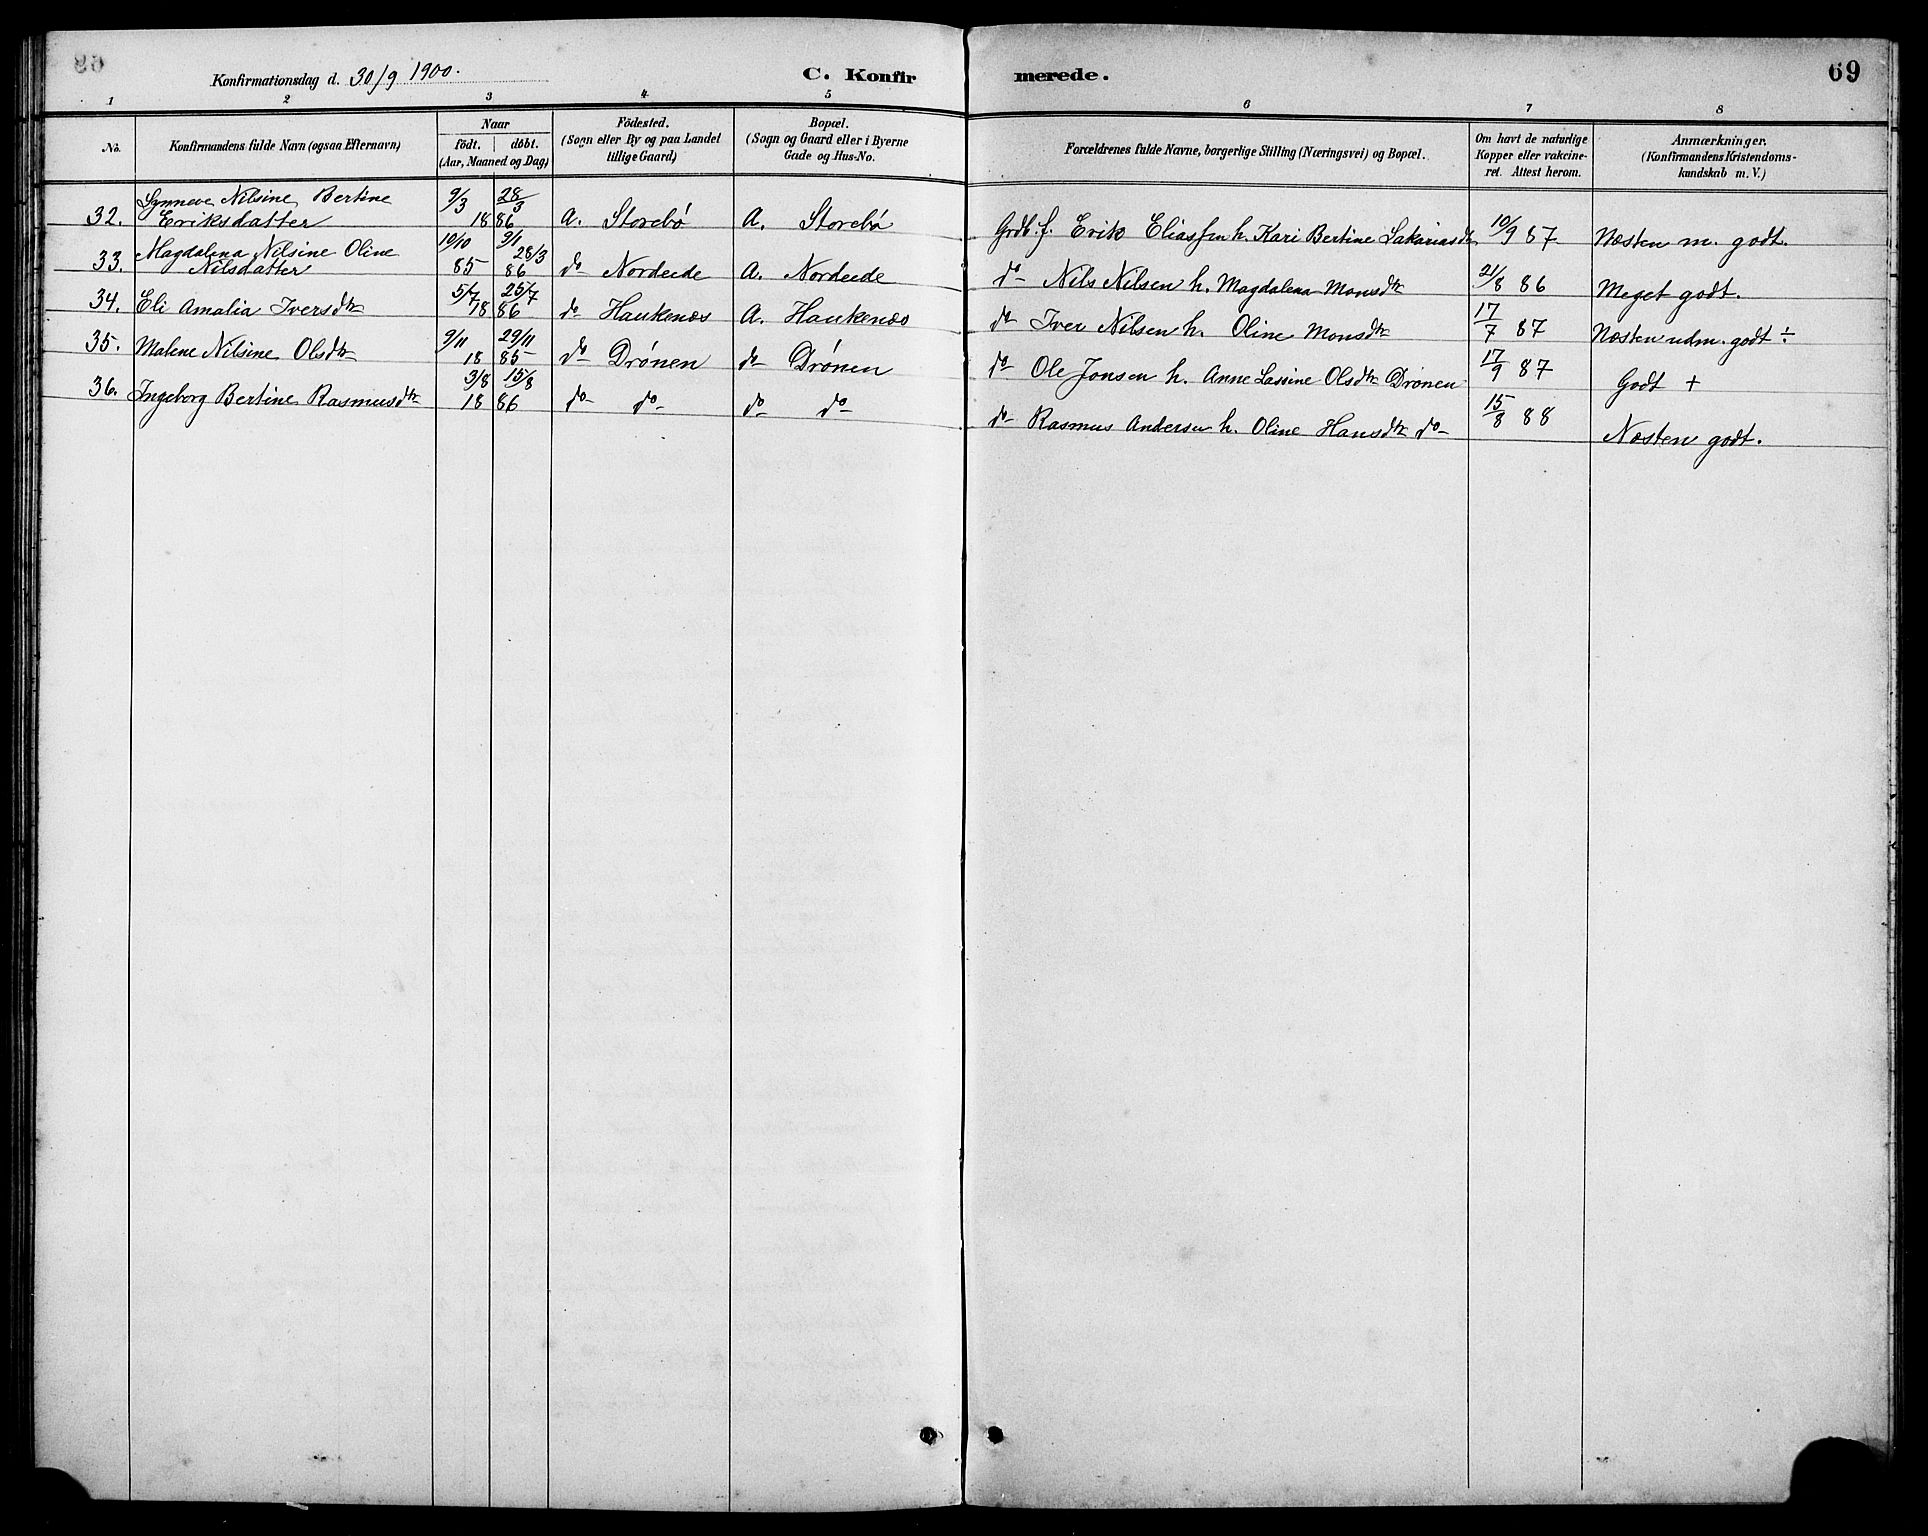 69
Konfirmationsdag d. 30/9 1900.
C. Konfirmerede.
1 2 3 4 5 6 7 8
No.
Konfirmandens fulde Navn (ogsaa Efternavn)
Naar
födt. döbt.
(Aar, Maaned og Dag)
Födested.
(Sogn eller By og paa Landet
tillige Gaard)
Bopæl.
(Sogn og Gaard eller i Byerne
Gade og Hus-No.
Forældrenes fulde Navne, borgerlige Stilling (Næringsvei) og Bopæl.
Om havt de naturlige
Kopper eller vakcine-
ret. Attest herom.
Anmærkninger.
(Konfirmandens Kristendoms-
kundskab m. V.)
Synneve Nilsine Bertine 9/3 28/3
32. Eriksdatter 18 86 A. Storebø A. Storebø Grdb. f. Erik Eliassen h. Kari Bertine Sakariasdtr 10/9 87 Næsten m. godt.
Magdalena Nilsine Oline 10/10 9/1 28/3
33. Nilsdatter 85 86 do Nordeide A. Nordeide do Nils Nilsen h. Magdalena Monsdtr 21/8 86 Meget godt.
34. Eli Amalia Iversdtr 5/7 25/7 18 86 do Haukenæs A. Haukenæs do Iver Nilsen h. Oline Monsdtr 17/7 87 Næsten udm. godt ÷
35. Malene Nilsine Olsdtr 9/11 29/11 18 85 do Drønen do Drønen do Ole Jonsen h. Anne Lassine Olsdtr Drønen 17/9 87 Godt +
36. Ingeborg Bertine Rasmusdtr 3/8 15/8 18 86 do do do do do Rasmus Andersen h. Oline Hansdtr do 15/8 88 Næsten godt.